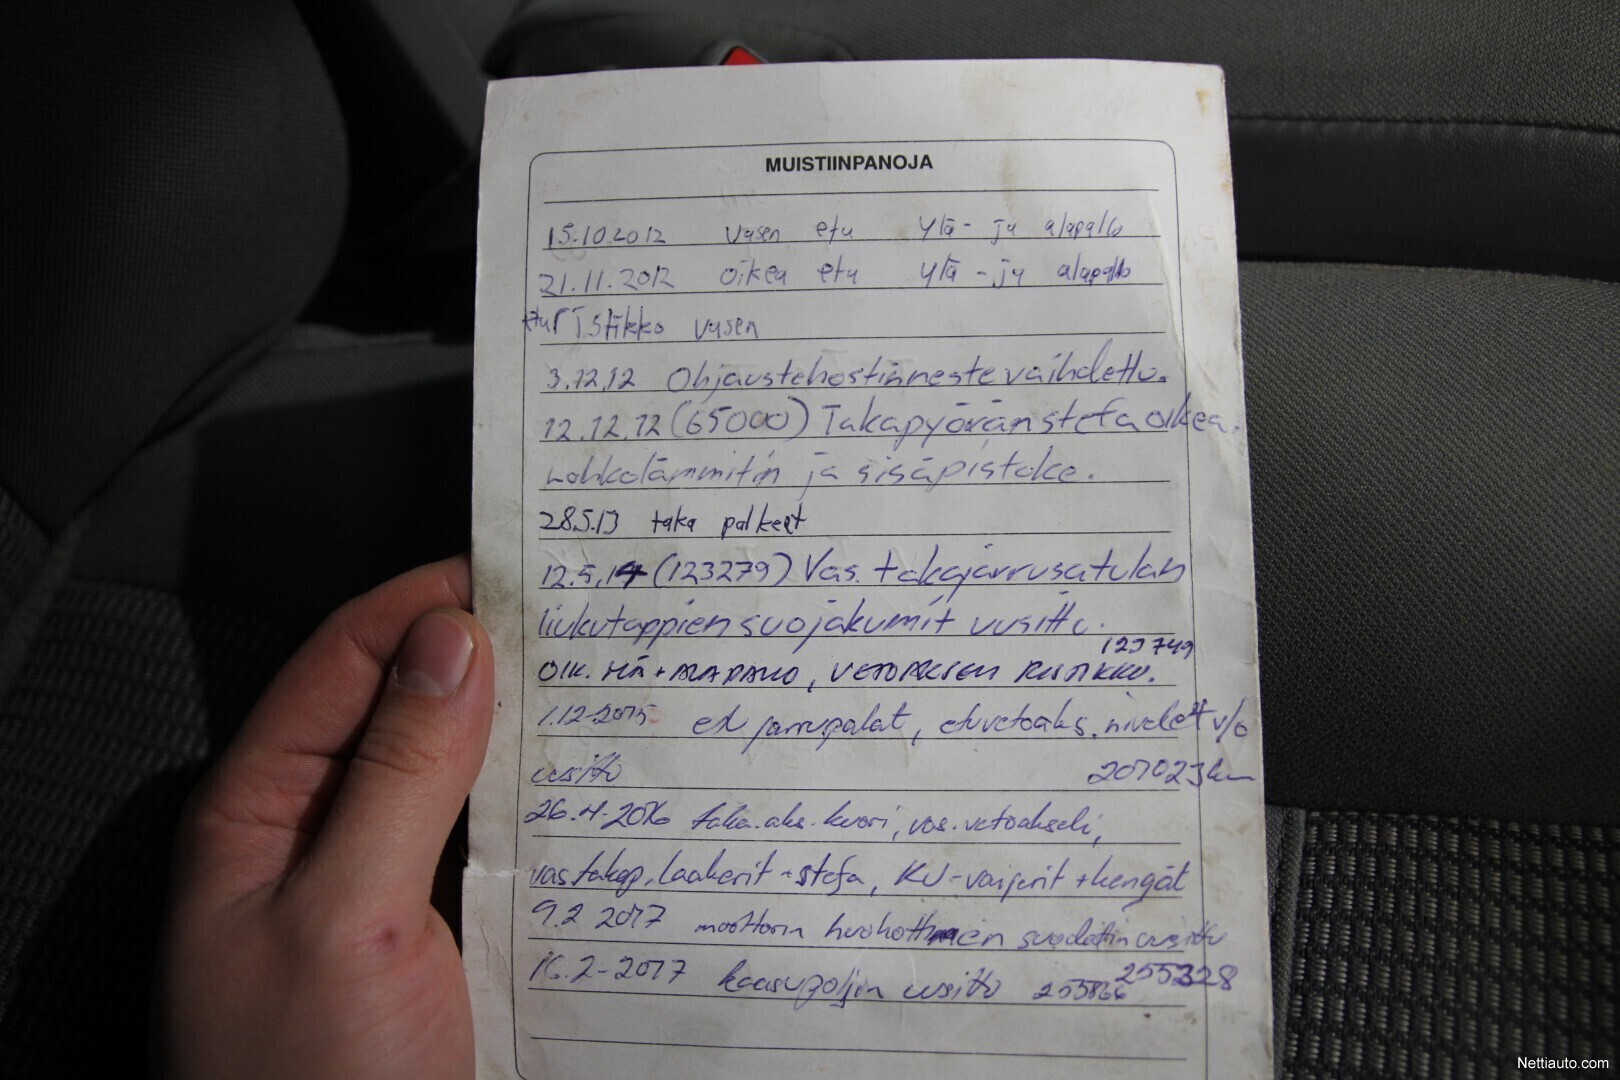 MUISTIINPANOJA
15.10.2012 vasen etu ylä- ja alapallo
21.11.2012 oikea etu ylä-ja alapallo
etur ristikko vasen
3.12.12 Ohjaustehostinneste vaihdettu.
12.12.12 (65000) Takapyörän stefa oikea.
Lohkolämmitin ja sisäpistoke.
28.5.13 taka palkeet
12.5.14 (123279) Vas. takajarrusatulan
liukutappien suojakumit uusittu.
123749
OIK. YLÄ + ALAPALLO, VETOAKSELIN RISTIKKO.
1.12-2015 et jarrupalat, etuvetoaks. nivelet v/o
uusittu 207023km
26.4-2016 taka.aks.kuori, vas.vetoakseli,
vas takap. laakerit + stefa, KJ-vaijerit + kengät
9.2 2017 moottorin huohottimen suodatin uusittu
255328
16.2-2017 kaasupoljin uusittu 255866
Nettiauto.com